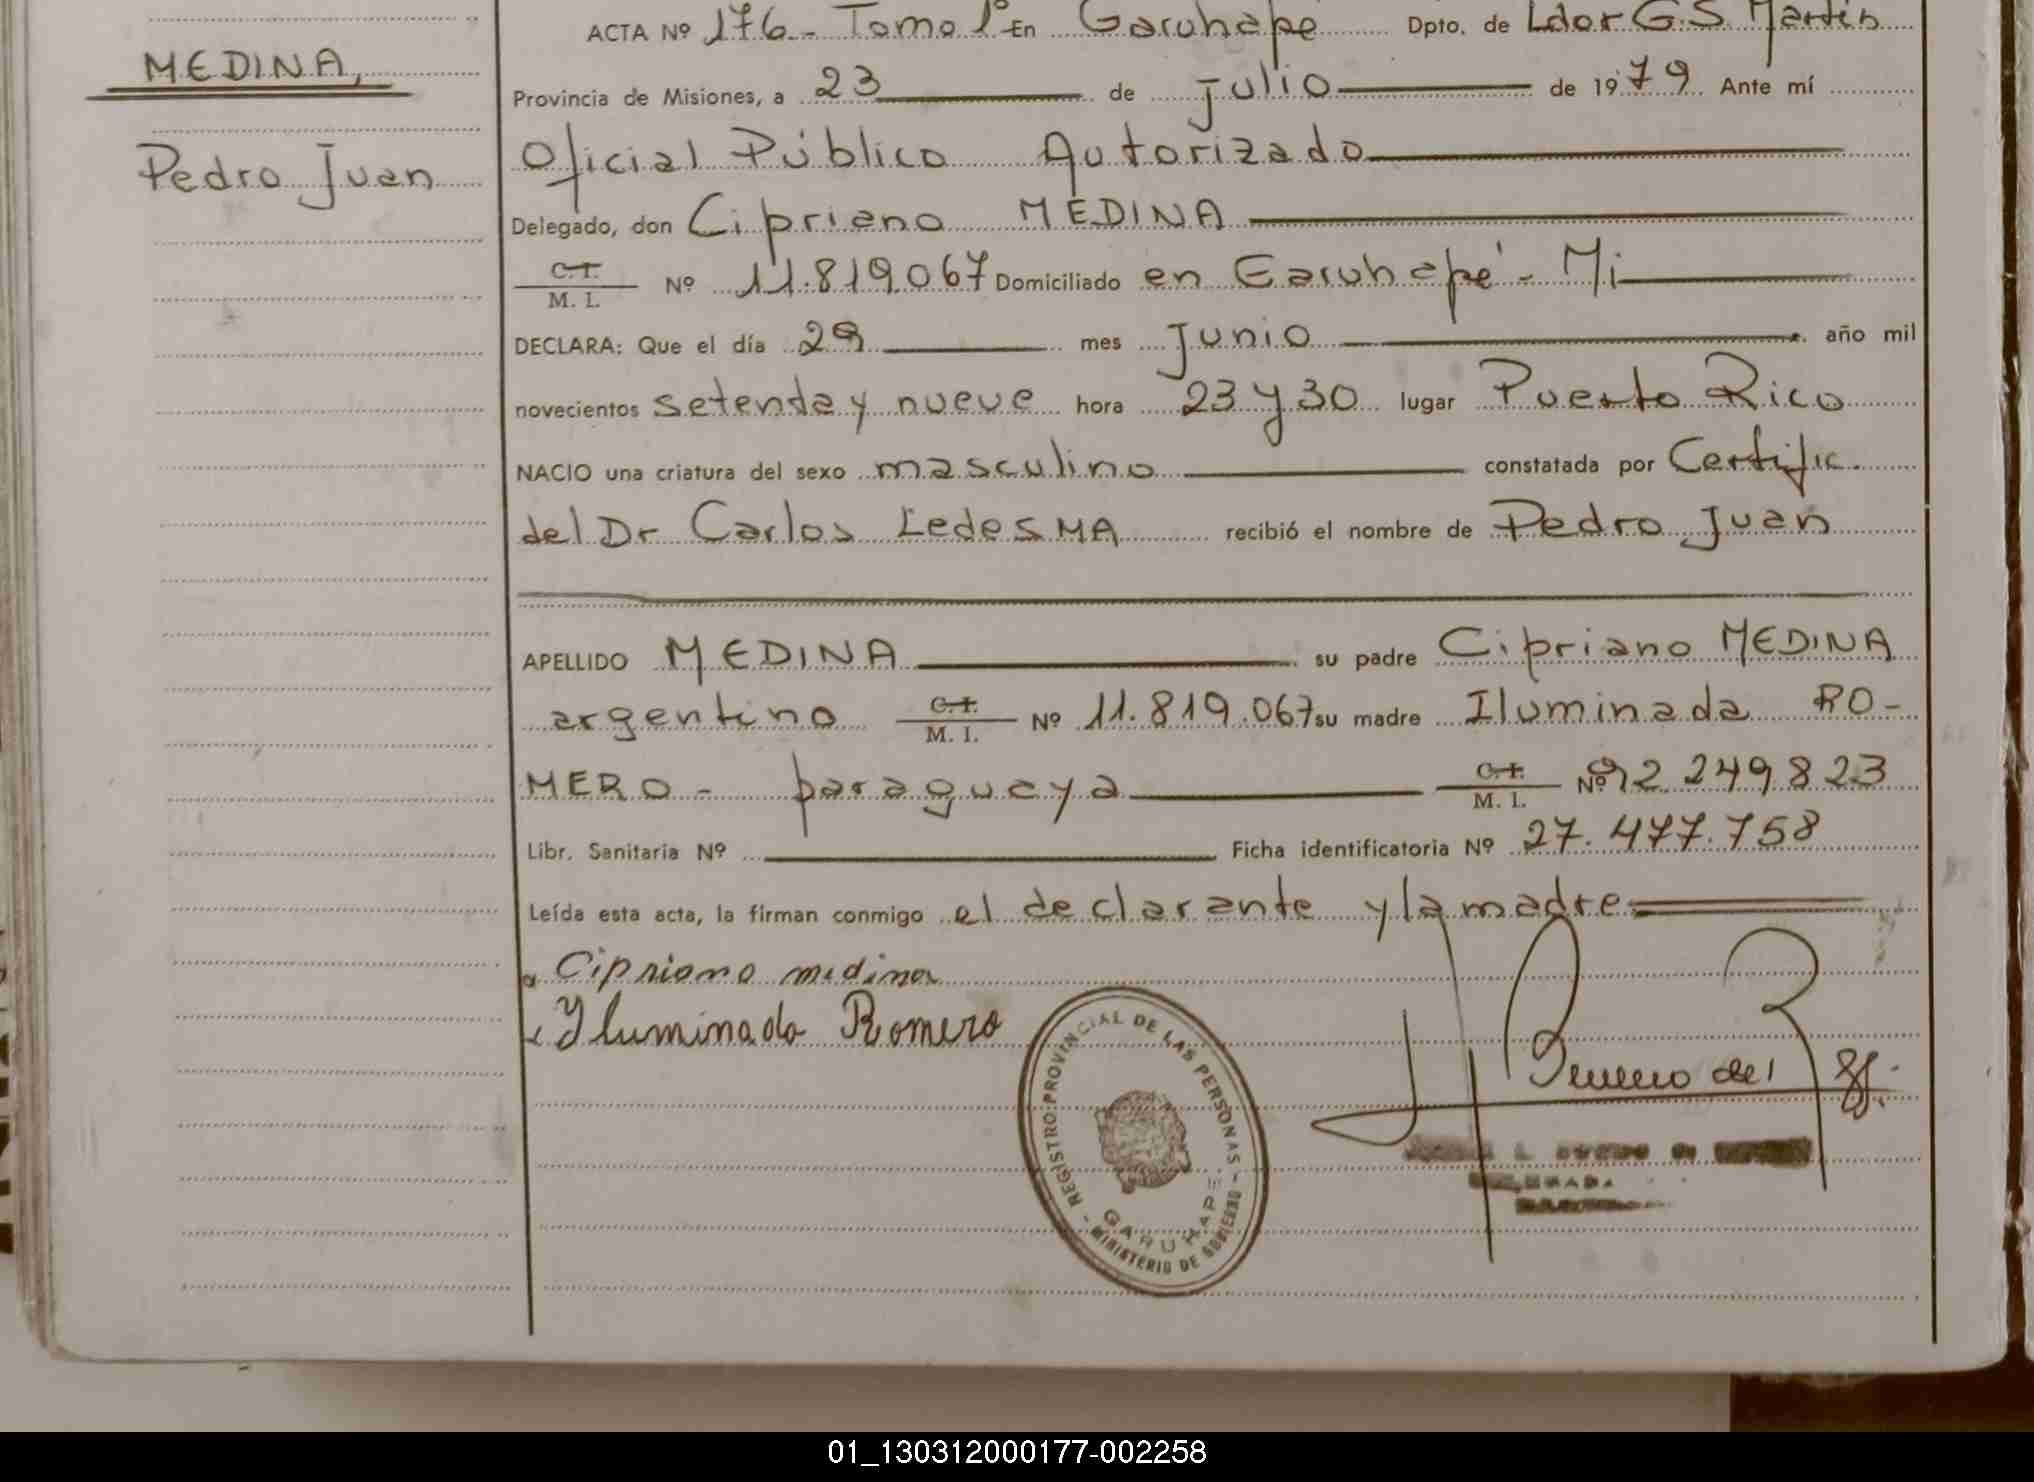 MEDINA,
Pedro Juan
ACTA Nº 176 - Tomo 1º En Garuhapé Dpto. de Ldor G.S. Martín
Provincia de Misiones, a 23 de Julio de 1979. Ante mí
Oficial Público Autorizado
Delegado, don Cipriano MEDINA
C.I.
M. I. Nº 11.819.067 Domiciliado en Garuhapé - Mi
DECLARA: Que el día 29 mes Junio año mil
novecientos setenta y nueve hora 23 y 30 lugar Puerto Rico
NACIO una criatura del sexo masculino constatada por Certific.
del Dr Carlos LedesMA recibió el nombre de Pedro Juan
APELLIDO MEDINA su padre Cipriano MEDINA
argentino C.I. M. I. Nº 11.819.067 su madre Iluminada RO-
MERO - paraguaya C.I. M. I. Nº 92.249.823
Libr. Sanitaria Nº Ficha identificatoria Nº 27.477.758
Leída esta acta, la firman conmigo el declarante y la madre
Cipriano medina
Iluminada Romero
REGISTRO PROVINCIAL DE LAS PERSONAS - MINISTERIO DE GOBIERNO -
GARUHAPE
01_130312000177-002258